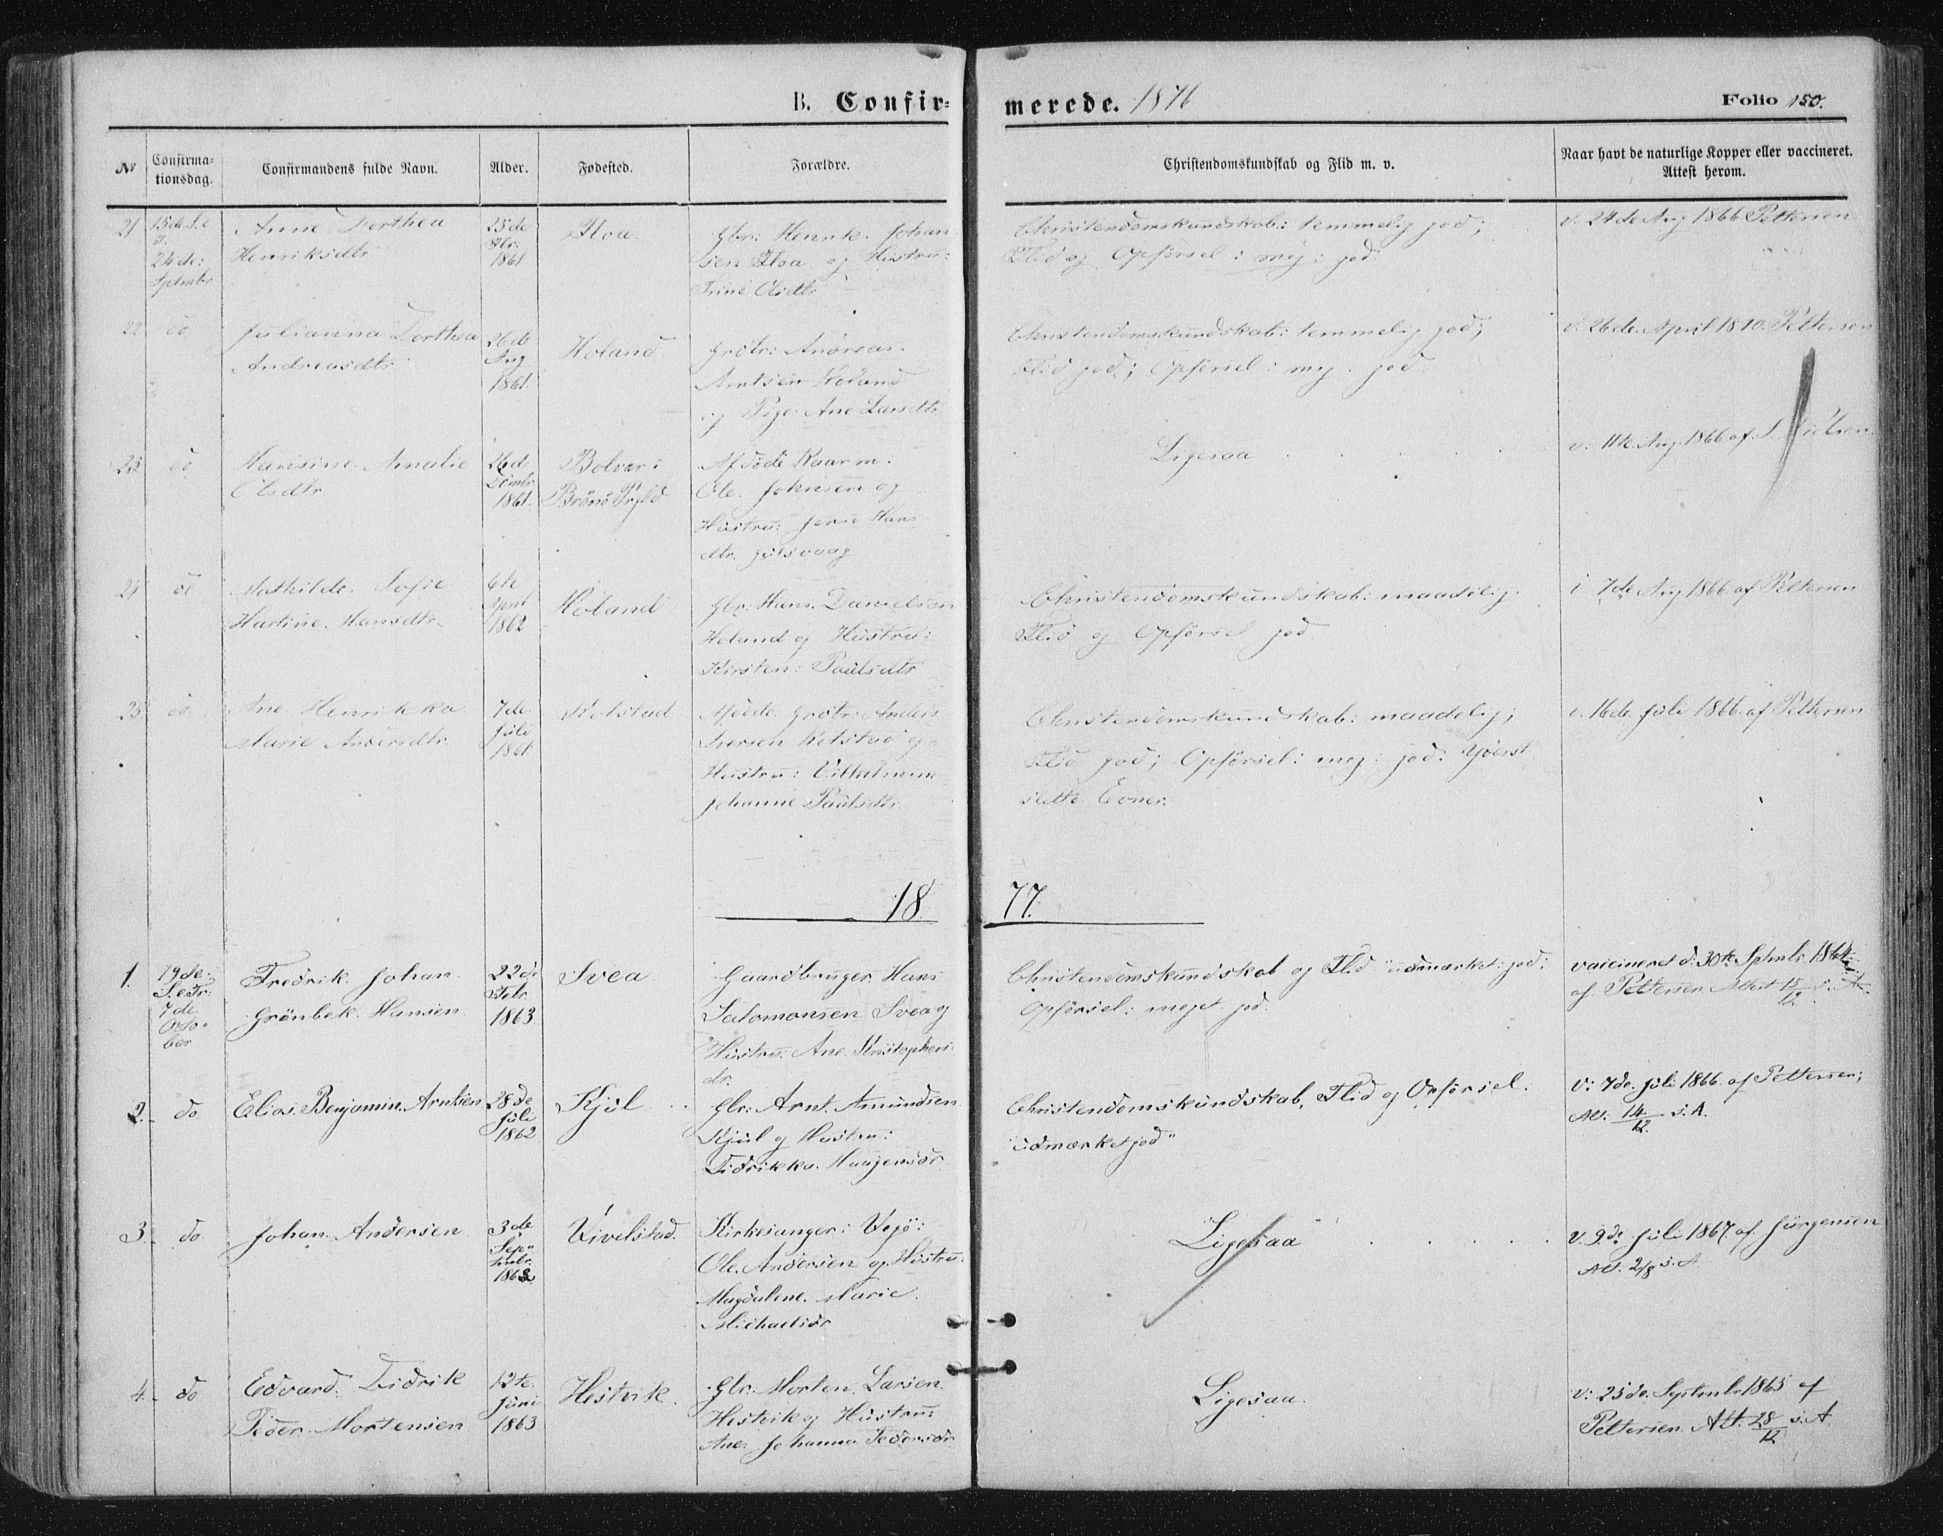 B. Confir=
merede. 1876
Folio 150.
No
Confirma-
tionsdag.
Confirmandens fulde Navn.
Alder.
Fødested.
Forældre.
Christendomskundskab og Flid m. v.
Naar havt de naturlige Kopper eller vaccineret.
Attest herom.
21
24de
Septmbr
Anne Dorthea
Henriksdtr
25de
1861
Floa
Gbr: Henrik Johan
sen Floa og Hustru:
Trine Olsdtr
Christendomskundskab: temmelig god;
Flid og Opførsel: meg: god.
v. 24de Aug 1866 Pettersen
22
do
Julianna Dorthea
Andreasdtr
26de
Aug
1861.
Høland
Grdbr: Andreas
Arntsen Høland
og Pige Ane Larsdtr
Christendomskundskab: temmelig god;
Flid god; Opførsel: meg. god.
v. 26de April 1870. Pettersen
23
do
Hansine Amalie
Olsdtr
26de
1861.
Bolvær i
Brønø Prgld
Afdøde Kaarm.
Ole Johnsen og
Hustru: Hans
dtr.
Ligesaa
v. 11te Aug. 1866 af
24
do
Mathilde Sofie
Hartine Hansdtr.
6te
April
1862
Høland
Gbr. Hans Danielsen
Høland og Hustru:
Kirsten Paulsdtr
Christendomskundskab: maadelig.
Flid og Opførsel god
7de Aug 1866 af Pettersen
25
do
Ane Henrikka
Marie Andersdtr.
7de
Juli
1861
Kolstad
Afdøde Grdbr Anders
Iversen Kolstad og
Hustru: Vilhelmine
Johanne Paulsdtr.
Christendomskundskab: maadelig;
Flid god; Opførsel: meg: god. Yderst
slette Evner.
v. 16de Juli 1866. af Pettersen
18
77.
1.
19de
S.e.Tr.
7de
Octo-
ber
Fredrik Johan
Grønbek Hansen
22de
Febr
1863
Svea
Gaardbruger Hans
Salomonsen Svea og
Hustru: Ane Kristophers
dr.
Christendomskundskab og Flid "udmærket god:
Opførsel: meget god.
vaccineret d. 30te Sptmbr 1864
af Pettersen Attest 15/12 s. A.
2.
do
Elias Benjamin Arntsen
28de
Juli
1862
Kjøl
Gbr: Arnt Amundsen
Kjøl og Hustru:
Didrikka Haagensdr.
Christendomskundskab, Flid og Opførsel.
"udmærket god"
v: 7de Juli 1866. af Pettersen;
Att. 14/12 s. A.
3.
do
Johan Andersen
3de
Sep-
tmbr.
Vivelstad.
Kirkesanger i Vejø:
Ole Andersen og Hustru:
Magdalene Marie
Michaelsdr
Ligesaa
v. 9de Juli 1867. af Jürgensen
Att. 2/8 s. A
4.
do
Edvard Didrik
Peder Mortensen
12te
Juni
1863
Hestvik.
Gbr. Morten Larsen
Hestvik og Hustru:
Ane Johanna Pedersdr
Ligesaa.
v: 25de Septmbr 1865 af
Pettersen Att. 28/12 s. A